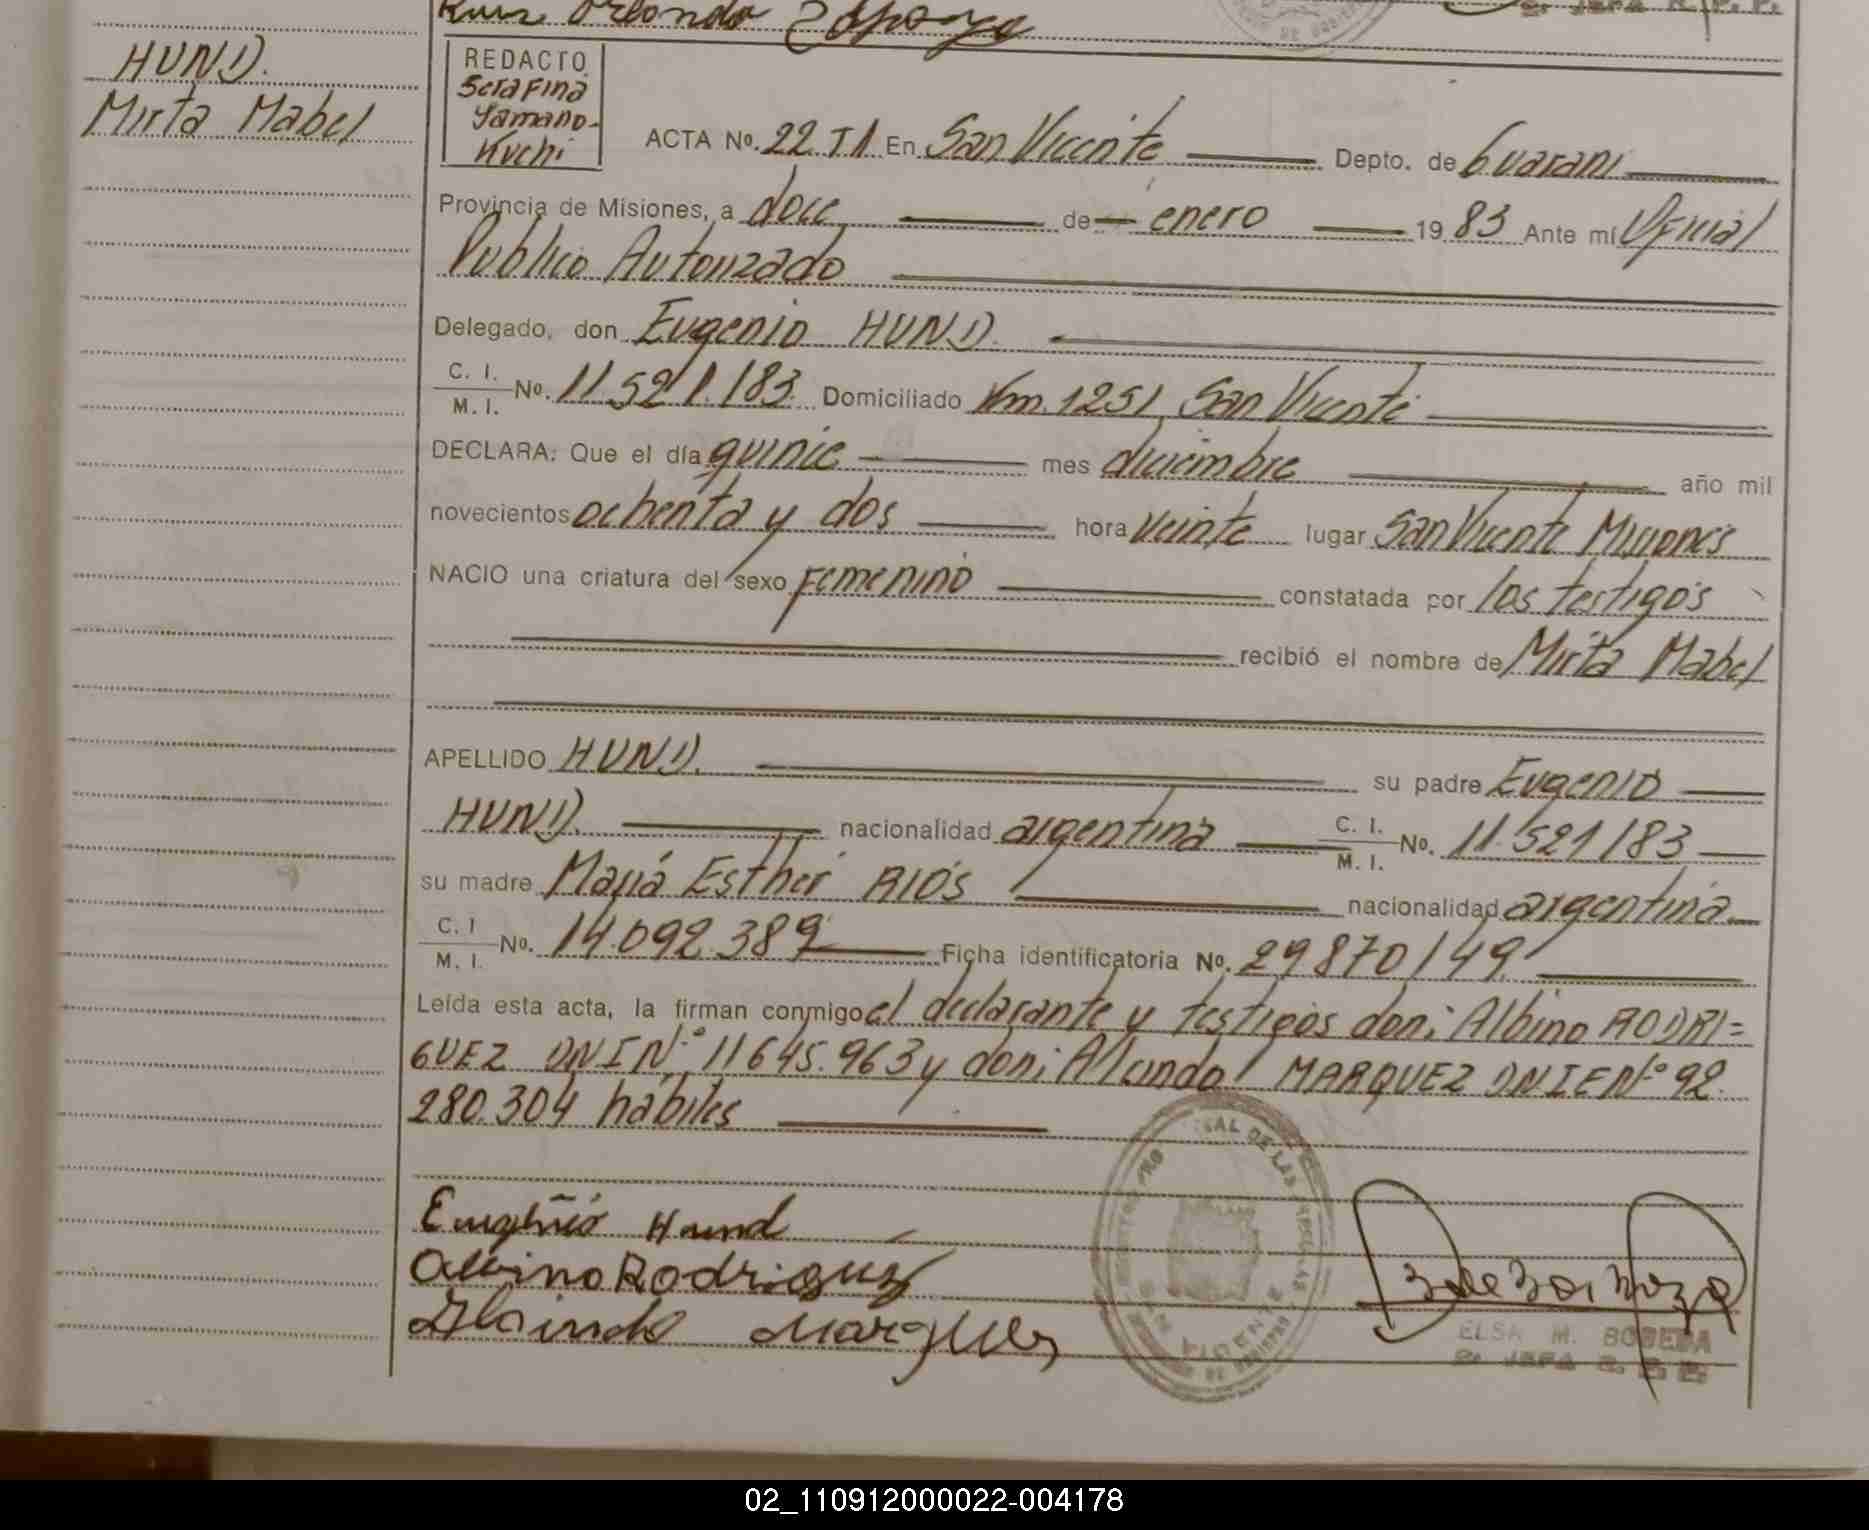 Luis Orlando
HUND.
Mirta Mabel
REDACTO
Serafina
Yamano-
Kuchi
ACTA No. 22 T1 En San Vicente Depto. de Guarani
Provincia de Misiones, a doce de enero 1983 Ante mí Oficial
Publico Autorizado
Delegado, don Eugenio HUND.
C. I. M. I. No. 11.521.183. Domiciliado Km. 1251 San Vicente
DECLARA: Que el día quince mes diciembre año mil
novecientos ochenta y dos hora veinte lugar San Vicente Misiones
NACIO una criatura del sexo Femenino constatada por los testigos
recibió el nombre de Mirta Mabel
APELLIDO HUND. su padre Eugenio
HUND. nacionalidad argentina C. I. M. I. No. 11.521.183
su madre María Esther RIOS nacionalidad argentina
C. I M. I. No. 14.092.389 Ficha identificatoria No. 29870/49
Leída esta acta, la firman conmigo el declarante y testigos don: Albino RODRI=
GUEZ DNI N° 11645.963 y don: Alcindo MARQUEZ DNIE N° 92.
280.304 habiles
Eugenio Hund
Albino Rodriguez
Alcindo Marques
ELSA M. BOBEDA
2a. JEFA R. P. P.
02_110912000022-004178